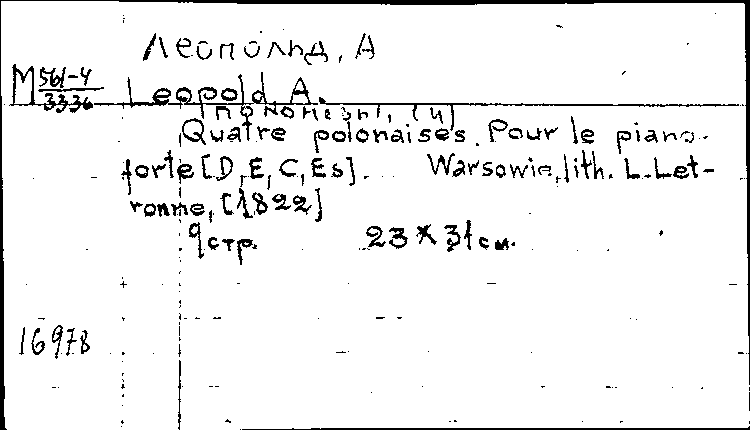 Леопольд, А
М 561-4
3336
Leopold, A.
[Полонезы, (4)
Quatre polonaises. Pour le piano-
forte [D, E, C, Es]. Warsowie, lith. L. Let-
ronne, [1822]
9 стр. 23 x 31 см.
16978